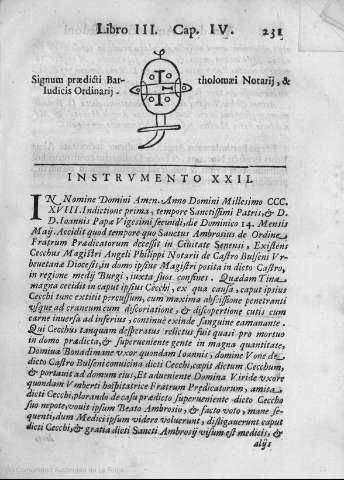 Libro III. Cap. IV. 231
Signum prædicti Bar- tholomæi Notarij, &
Iudicis Ordinarij.
INSTRVMENTO XXII.
IN Nomine Domini Amen. Anno Domini Millesimo CCC.
XVIII. Indictione prima, tempore Sanctissimi Patris, & D.
D. Ioannis Papæ Vigesimi secundi, die Dominico 14. Mensis
Maij. Accidit quod tempore quo Sanctus Ambrosius de Ordine
Fratrum Prædicatorum decessit in Ciuitate Senensi, Existens
Cecchus Magistri Angeli Philippi Notarij de Castro Bulseni Vr-
beuetanæ Diocesis, in domo ipsius Magistri posita in dicto Castro,
in regione medij Burgi, iuxta suos confines. Quædam Tina
magna cecidit in caput ipsius Cecchi, ex qua causa, caput ipsius
Cecchi tunc extitit percussum, cum maxima abscissione penetranti
vsque ad craneum cum discoriatione, & discopertione cutis cum
carne inuersa ad inferius, continuè exinde sanguine eamanante.
Qui Cecchus tanquam desperatus relictus fuit quasi pro mortuo
in domo prædicta, & superueniente gente in magna quantitate,
Domina Bonadimane vxor quondam Ioannis, domine Vone de
dicto Castro Bulseni comuicina dicti Cecchi, cæpit dictum Cecchum,
& portauit ad domum eius, Et adueniente Domina Viride vxore
quondam Vmberti hospitatrice Fratrum Prædicatorum, amita
dicti Cecchi, plorando de casu prædicto superueniente dicto Cecchо
suo nepote, vouit ipsum Beato Ambrosio, & facto voto, mane se-
quenti, dum Medici ipsum videre voluerunt, disligauerunt caput
dicti Cecchi, & gratia dicti Sancti Ambrosij visum est medicis, &
alijs
Comunidad Autónoma de La Rioja